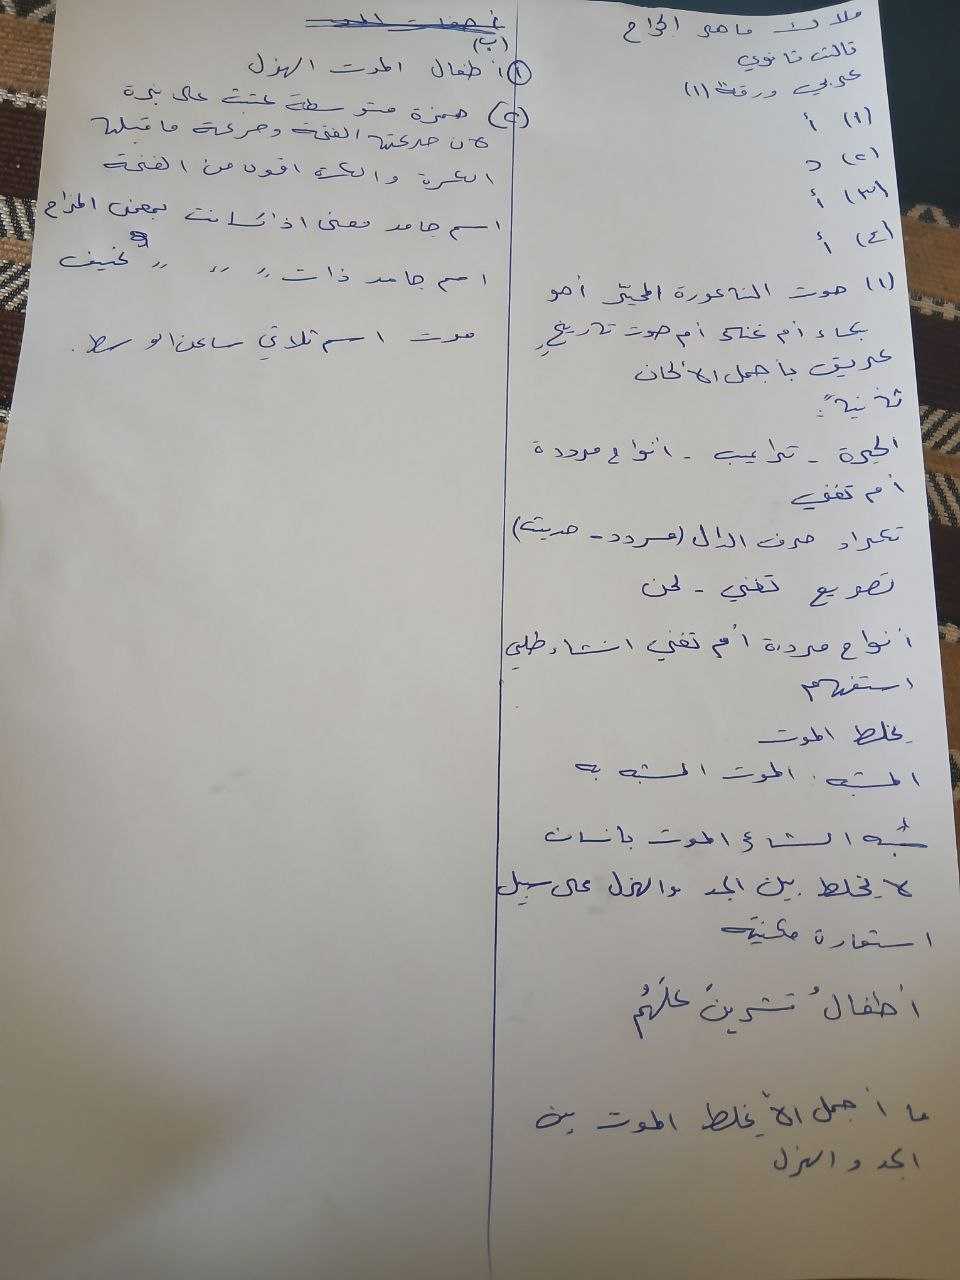 ملاك ماهر الجراح
ثالث ثانوي
عربي ورقة (١)
(١) أ
(٢) د
(٣) أ
(٤) أ
(١) صوت الناعورة المحيّر أهو
بكاء أم غناء أم صوت تاريخٍ
عريق بأجمل الألحان
ثانياً:
الحيرة - تراكيب - أنواح مرددة
أم تغني
تكرار حرف الدال (مردد - حديث)
تصريع تغني - لحن
أنواح مرددة أم تغني انشاء طلبي
استفهام
يخلط الموت
المشبه: الموت المشبه به
شبه الشاعر الموت بانسان
لا يخلط بين الجد والهزل على سبيل
استعارة مكنية
أطفالُ تشرينَ علّهُم
ما أجمل ألا يخلط الموت بين
الجد والهزل
(ب)
١ أطفال الموت الهزل
(٢) همزة متوسطة كتبت على نبرة
لان حركتها الفتحة وحركة ماقبلها
الكسرة والكسرة اقوى من الفتحة
اسم جامد معنى اذا كانت بمعنى المزاح
اسم جامد ذات " " " نحيف
موت اسم ثلاثي ساكن الوسط.